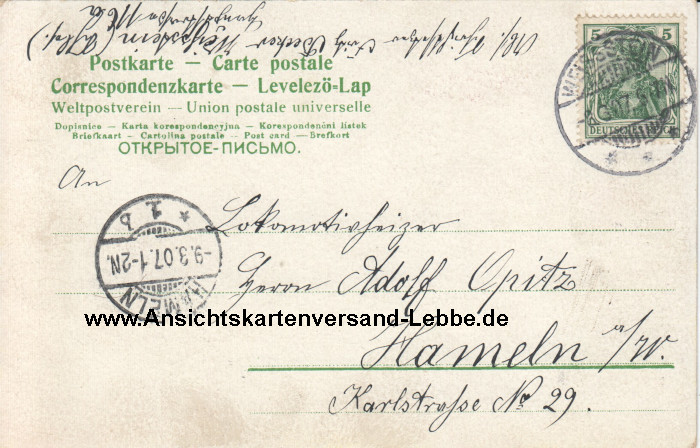 Postkarte — Carte postale
Correspondenzkarte — Levelező-Lap
Weltpostverein — Union postale universelle
Dopisnice — Karta korespondencyjna — Korespondenční lístek
Briefkaart — Cartolina postale — Post card — Brefkort
ОТКРЫТОЕ-ПИСЬМО.
5 5
DEUTSCHES REICH
An
Lokomotivheizer
Herrn Adolf Opitz
Hameln a/W.
Karlstrasse No 29.
HAMELN
-9.3.07.1-2N.
* 1b
www.Ansichtskartenversand-Lebbe.de